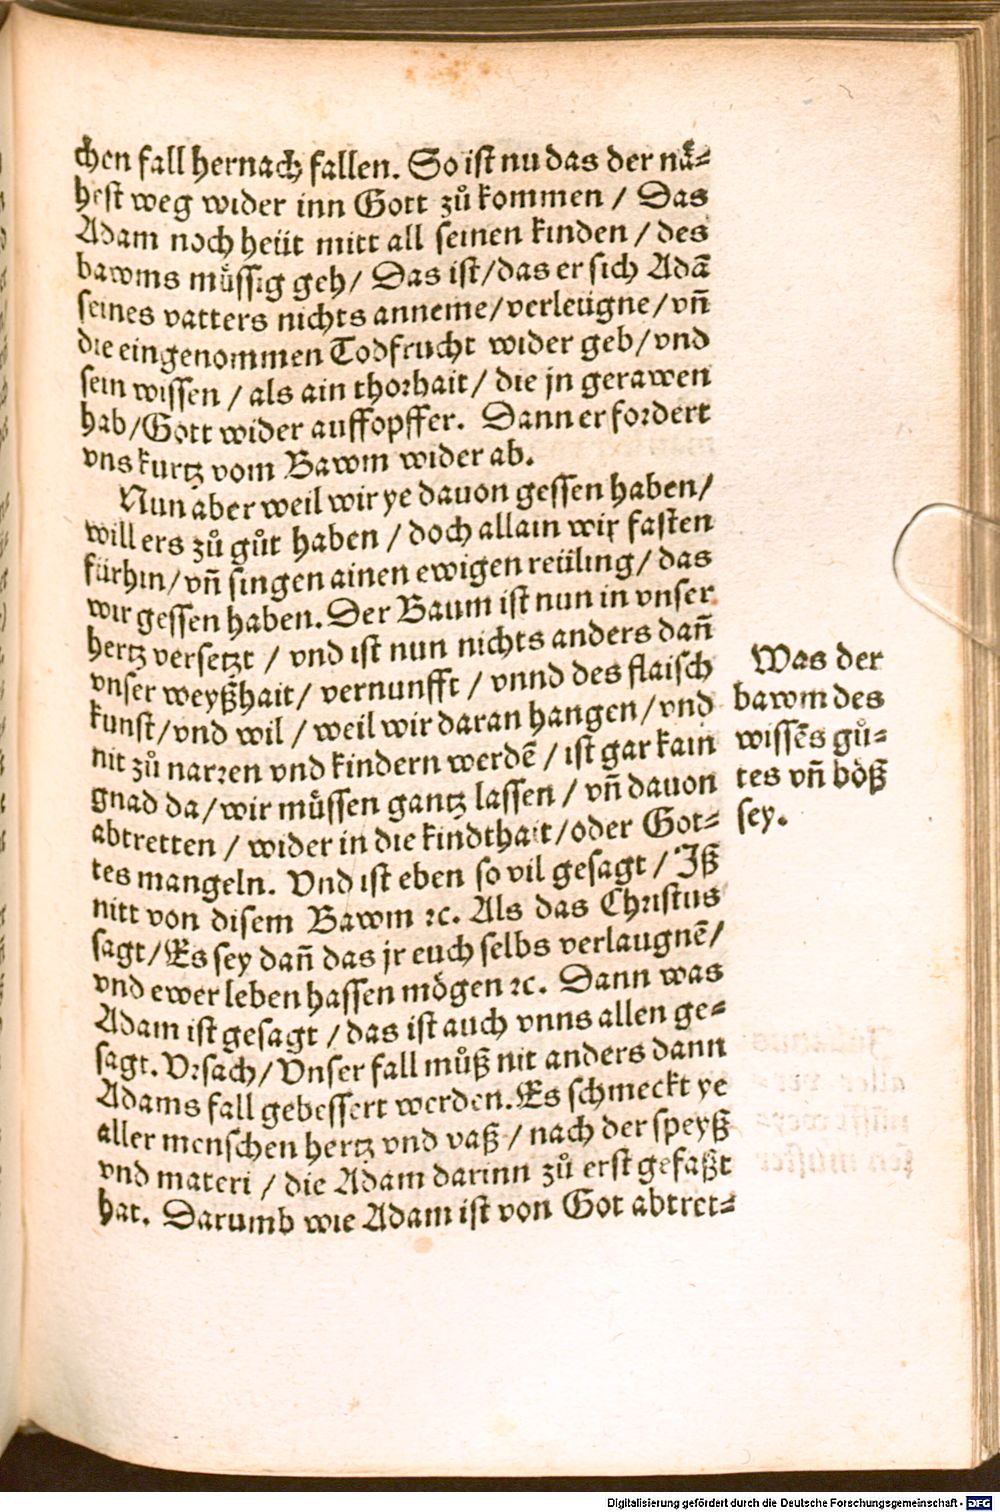 chen fall hernach fallen. So ist nu das der nå⸗
hest weg wider inn Gott zů kommen / Das
Adam noch heüt mitt all seinen kinden / des
bawms můssig geh / Das ist / das er sich Adā
seines vatters nichts anneme / verleügne / vñ
die eingenommen Todfrucht wider geb / vnd
sein wissen / als ain thorhait / die jn gerawen
hab / Gott wider auffopffer. Dann er fordert
vns kurtz vom Bawm wider ab.
Nun aber weil wir ye dauon gessen haben /
will ers zů gůt haben / doch allain wir fasten
fürhin / vñ singen ainen ewigen reüling / das
wir gessen haben. Der Baum ist nun in vnser
hertz versetzt / vnd ist nun nichts anders dañ
vnser weyßhait / vernunfft / vnnd des flaisch
kunst / vnd wil / weil wir daran hangen / vnd
nit zů narren vnd kindern werdē / ist gar kain
gnad da / wir můssen gantz lassen / vñ dauon
abtretten / wider in die kindthait / oder Got⸗
tes mangeln. Vnd ist eben so vil gesagt / Iß
nitt von disem Bawm ꝛc. Als das Christus
sagt / Es sey dañ das jr euch selbs verlaugnē /
vnd ewer leben hassen mögen ꝛc. Dann was
Adam ist gesagt / das ist auch vnns allen ge⸗
sagt. Vrsach / Vnser fall můß nit anders dann
Adams fall gebessert werden. Es schmeckt ye
aller menschen hertz vnd vaß / nach der speyß
vnd materi / die Adam darinn zů erst gefaßt
hat. Darumb wie Adam ist von Got abtret⸗
Was der
bawm des
wissēs gů⸗
tes vñ böß
sey.
Digitalisierung gefördert durch die Deutsche Forschungsgemeinschaft - DFG